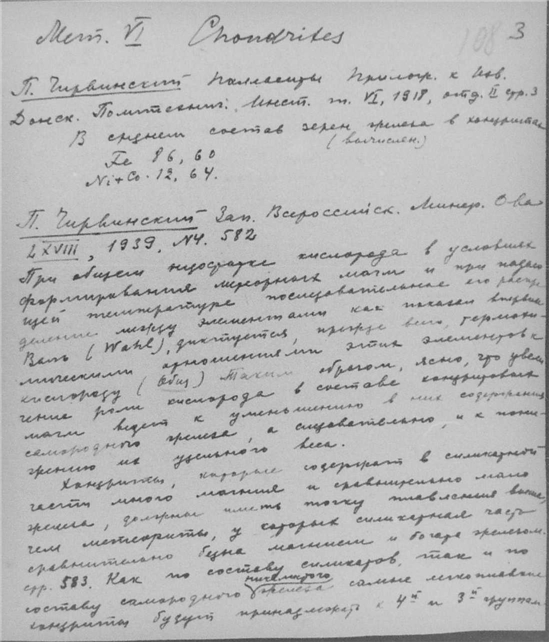 Мет. VI Chondrites 108 3
П. Чирвинский Палласиты Прилож. к Изв.
Донск. Политехнич. Инст. т. VI, 1918, отд. II стр. 3
В среднем состав зерен железа в хондритах
(вычислен.)
Fe 86,60
Ni+Co. 12,64.
П. Чирвинский Зап. Всероссийск. Минер. О-ва
LXVIII, 1939, №4. 582
При общем недостатке кислорода в условиях
формирования магм и при падаю
щей температуре последовательное его распре
деление между элементами как показал впервые
Валь (Wahl), диктуется, прежде всего, термохи
мическими отношениями этих элементов к
кислороду (Общ) Таким образом, ясно, что увели
чение роли кислорода в составе хондритовых
магм ведет к уменьшению в них содержания
самородного железа, а следовательно, и к пони
жению их удельного веса.
Хондриты, которые содержат в силикатной
части много магния и сравнительно мало
железа, должны иметь точку плавления выше,
чем метеориты, у которых силикатная часть
сравнительно бедна магнием и богаче железом.
стр. 583. Как по составу силикатов, так и по
составу самородного никелистого железа самые легкоплавкие
хондриты будут принадлежать к 4й и 3й группам